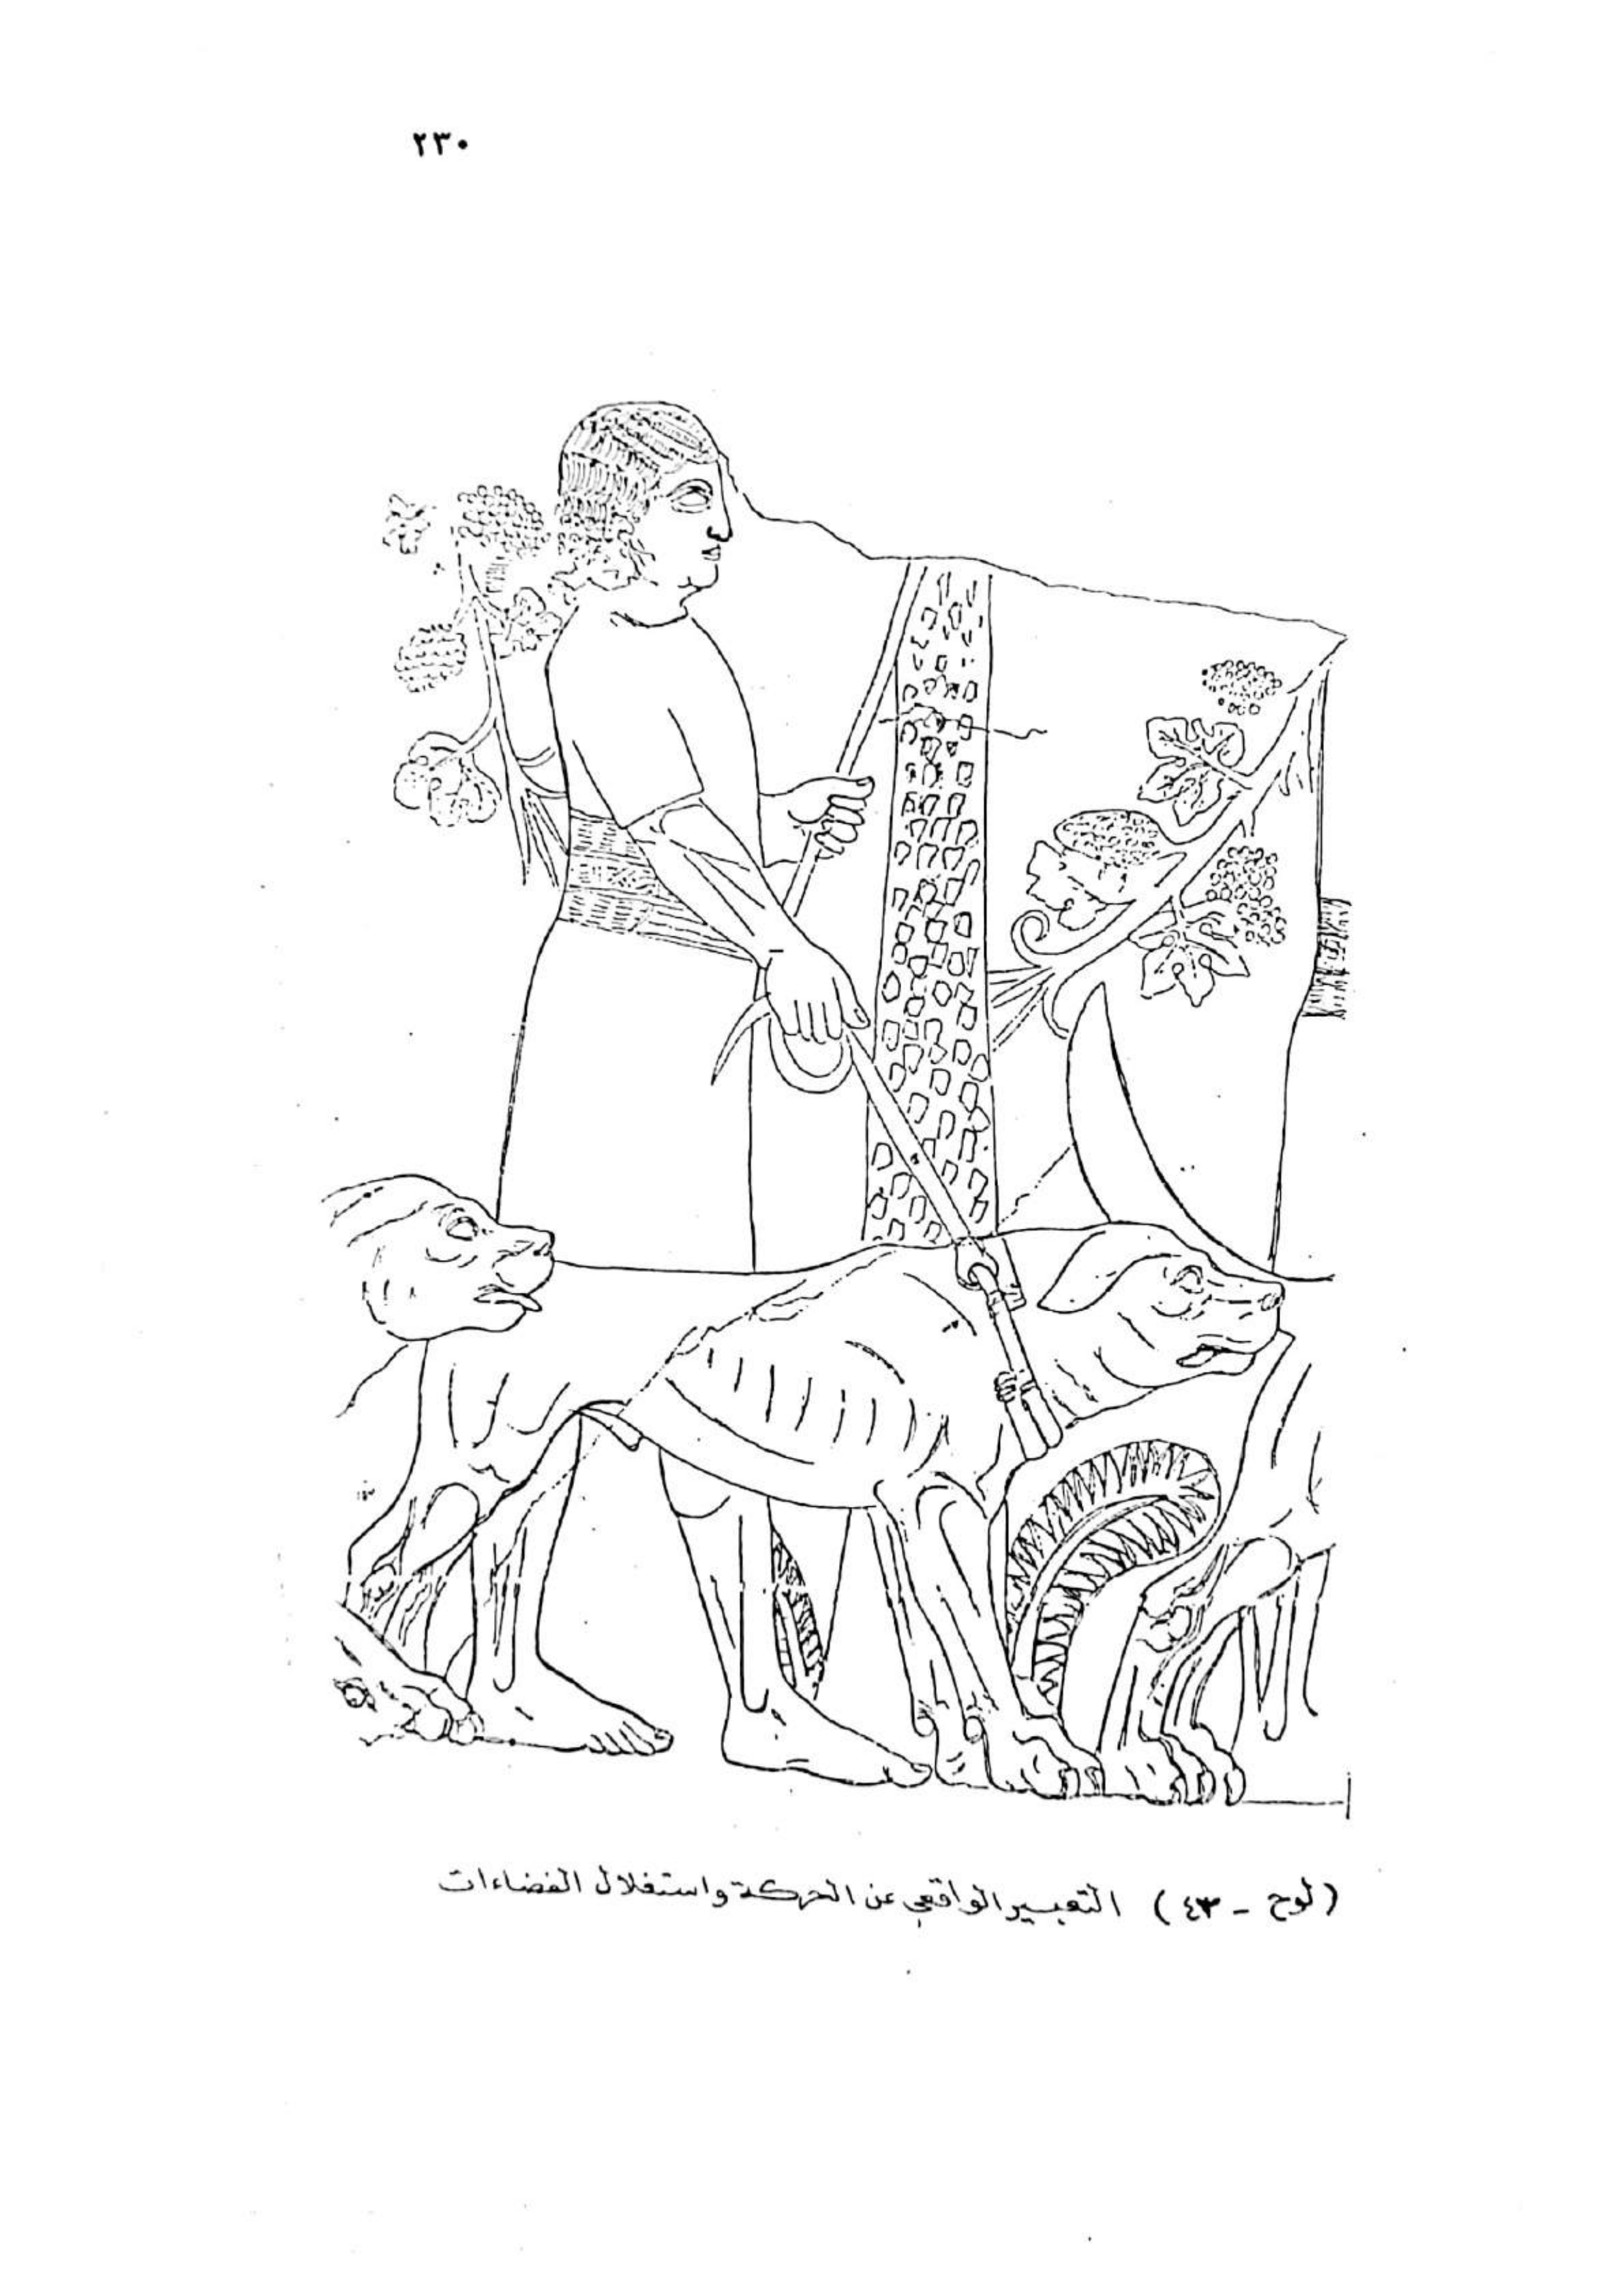 ٢٣٠
(لوح - ٤٣) التعبير الواقعي عن الحركة واستغلال الفضاءات